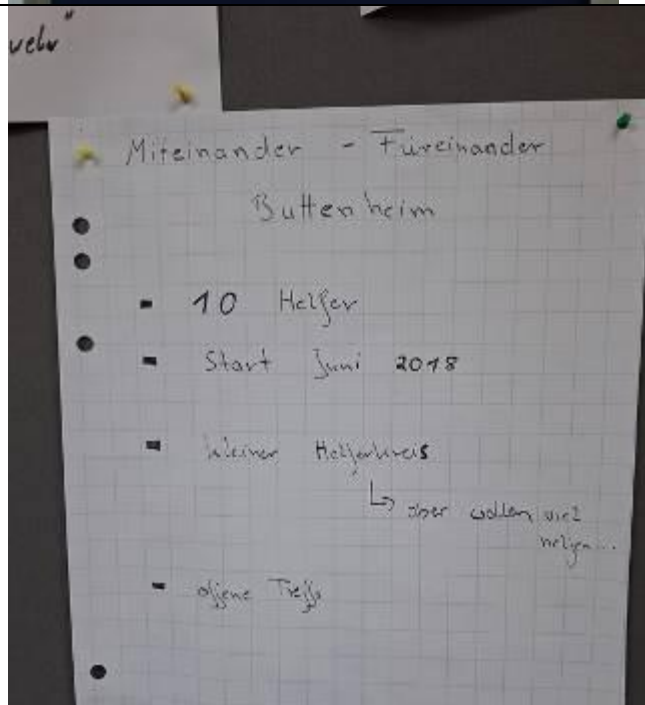 Miteinander - Füreinander
Buttenheim
- 10 Helfer
- Start Juni 2018
- kleiner Helferkreis
↳ aber wollen viel
helfen...
- offene Treffs